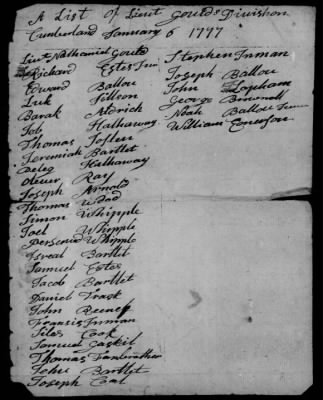 A List of Lieut Gould's Division
Cumberland January 6 1777
Lieut Nathaniel Gould
Richard Estes Jun
Edward Ballou
Luk Jillson
Barak Aldrich
Job Hathaway
Thomas Joslin
Jeremiah Bartlet
Peleg Hathaway
Oliver Ray
Joseph Arnold
Thomas Wood
Simon Whipple
Joel Whipple
Whipple
Isreal Bartlet
Samuel Estes
Jacob Bartlet
Daniel Trask
John
Francis Inman
Silas Cook
Samuel Gaskil
Thomas
John Bartlet
Joseph
Stephen Inman
Joseph Ballou
John Lapham
George Brownell
Noah Ballou Jun
William Emerson